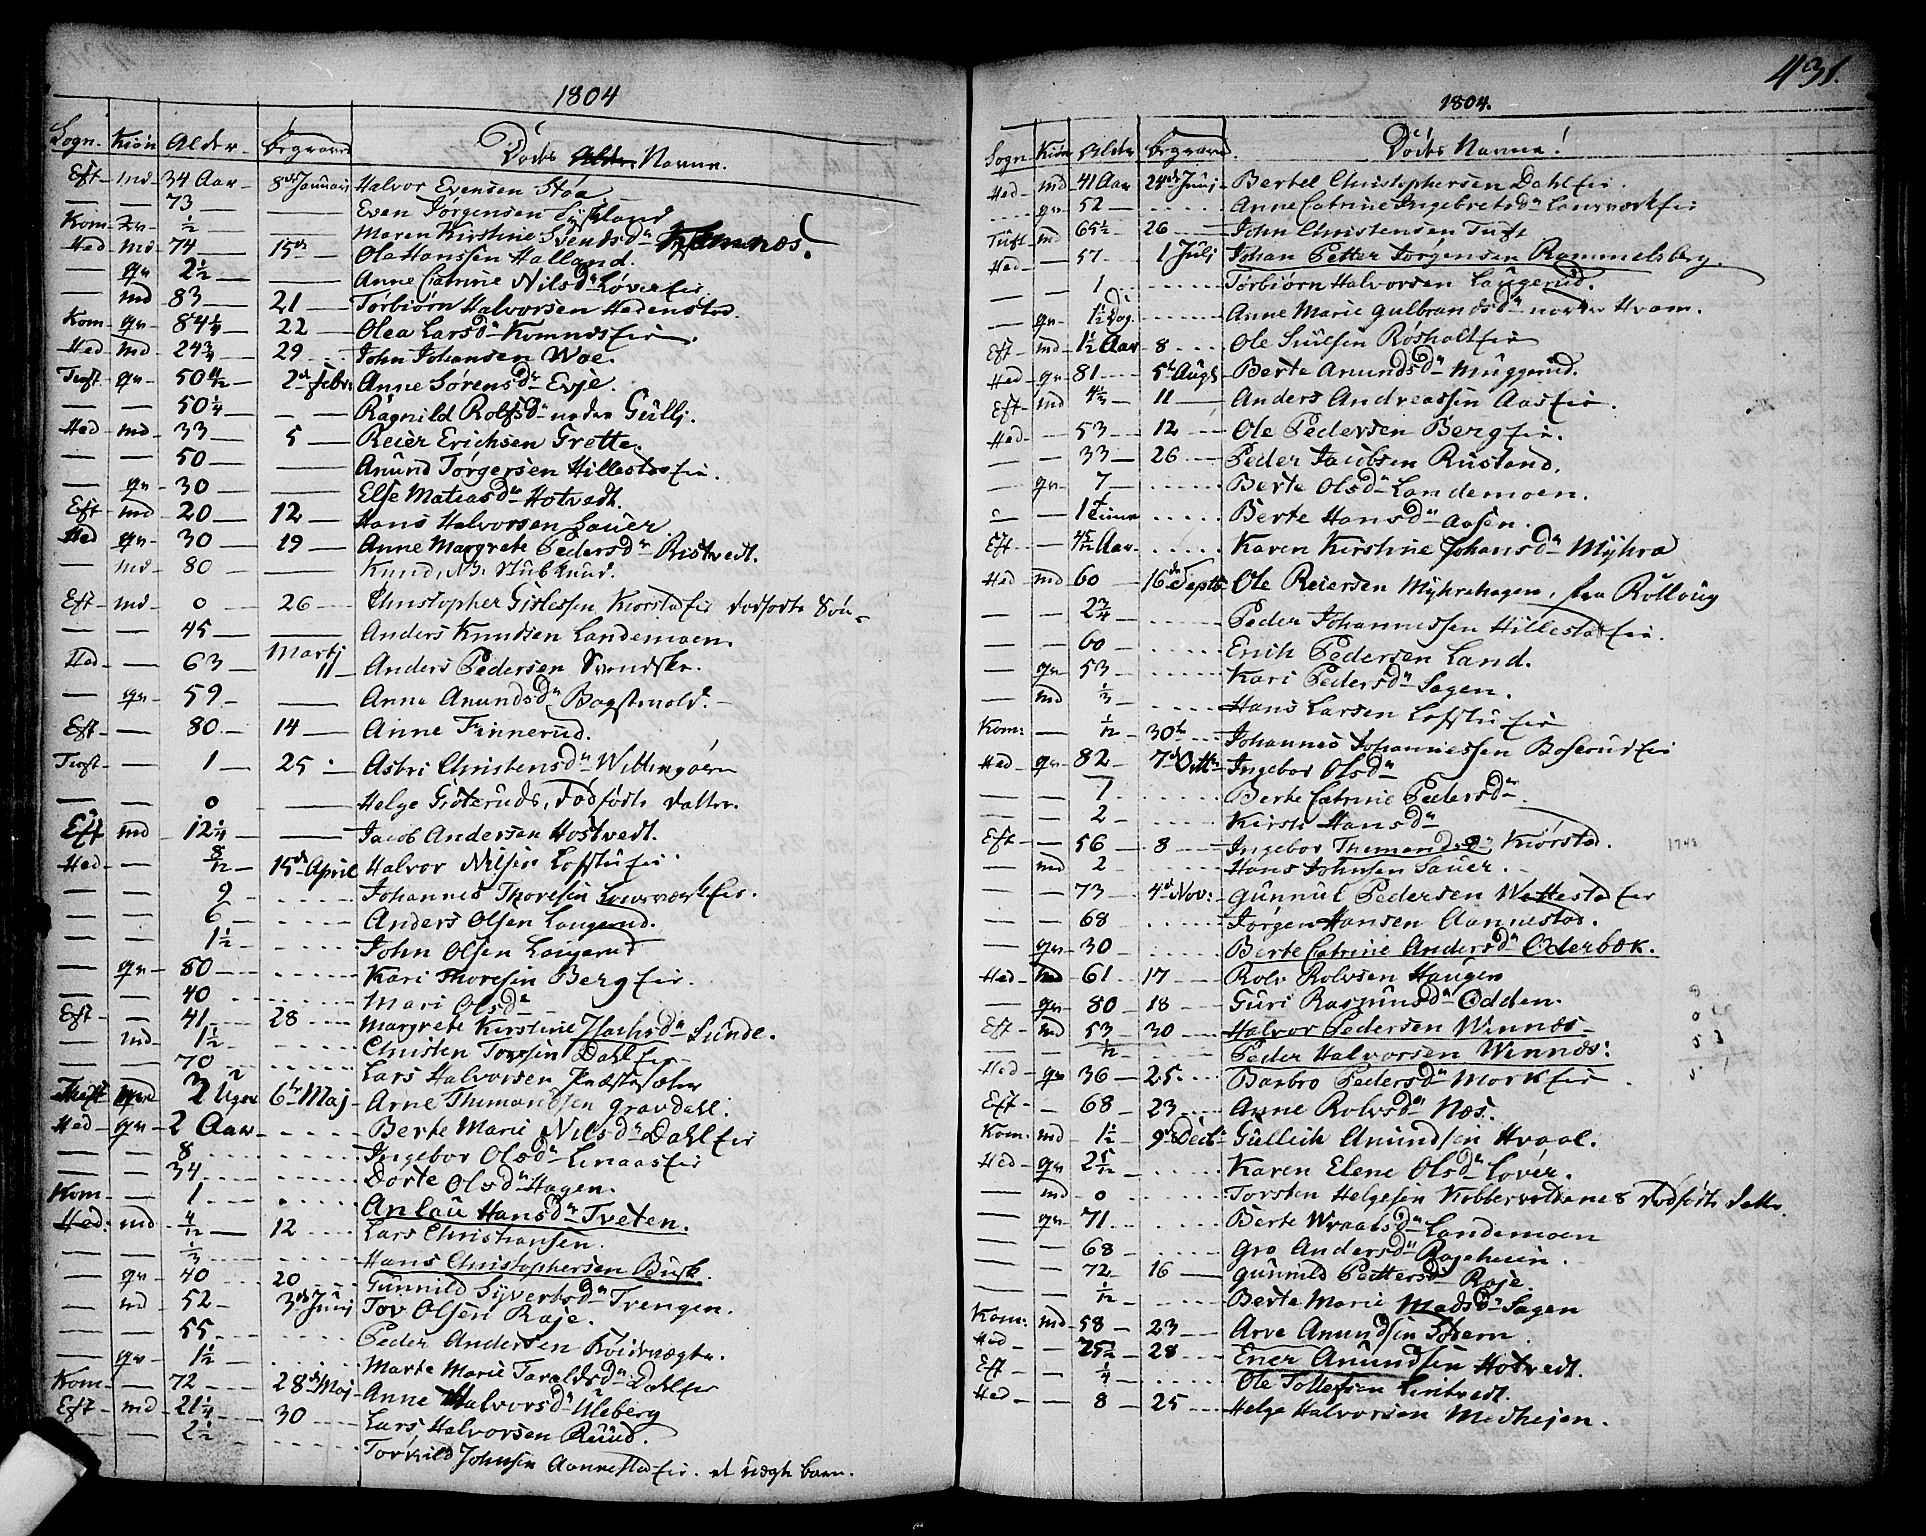 431.
1804
Sogn. Kiön Alder. Begravne Döds Navne.
Eft md 34 Aar 8de Januarj Halvor Evensen Stöa
— — 73 — — Even Jörgensen Lysland
Kom qv ½ — Maren Kirstine Svendsdr
Hed md 74 15de Ola Hanssen Halland.
— qv 2½ — Anne Catrine Nilsdr Löver eie
— md 83 21 Torbiörn Halvorsen Hedenstad.
Kom qv 84¼ 22 Olea Larsdr Komnes eie.
Hed md 24¾ 29 John Johansen Woe.
Tuft qv 50 11/12 2de Febr Anne Sörensdr Evje.
— — 50¼ — Ragnild Rolfsdr nedre Gullj.
Hed md 33 5 Reier Erichsen Trette.
— — 50 — Anund Törgersen Hillestad eie.
— qv 30 — Else Matiasdr Hotvedt.
Eft md 20 12 Hans Halvorsen Sauer.
Hed qv 30 19 Anne Margrete Pedersdr Ristvedt.
— md 80 — Knud, N.B. Stub Knud.
Eft md 0 26 Christopher Gislessen Kiorstad eie dodfödte Sön
— — 45 — Anders Knudsen Landemoen.
Hed — 63 Martj 11 Anders Pedersen Svendske.
— qv 59 — Anne Anundsdr
Eft — 80 14 Anne Finnerud.
Tuft — 1 25 Astri Christensdr
— — 0 — Helge Giöteruds, dödfödte datter.
Eft md 12¼ — Jacob Andersen Hostvedt.
Hed — 8/12 15de April Halvor Nilsen Lofstu eie
— — 9 Johannes Thoresen Laurværk eie.
— — 6 Anders Olsen Langerud.
— — 1½ John Olsen Langerud
— qv 80 Kari Thoresen Berg eie.
— — 40 Mari Olsdr
Eft — 41 28 Margrete Kirstine Sunde.
— md 1½ Christen Torssen Dahl eie
— — 70 Lars Halvorsen Præstesæter
3 Uger 6te Maj Arne Thumandsen Gravdall.
Hed qv 2 Aar Berte Marie Nilsdr Dahl eie
— — 8 Ingebor Olsdr Linaas eie
— — 34 Dorte Olsdr Hagen.
Kom — 1 Anlau Hansdr Tveten.
Hed. md 4/12 12 Lars Christiansen.
— — ⅓ Hans Christophersen Busk.
— qv 40 20 Gunnild Syvertsdr Trengen.
— md 52 3de Junj Tov Olsen Raje.
— — 55 Peder Andersen
— qv 1½ Marte Marie Taraldsdr Dahl eie
Kom — 72 28de Maj Anne Halvorsdr Uleberg
Eft md 21¼ 30 Lars Halvorsen Ruud.
— — 2½ Torkild Johnsen Aannestad eie. et uægte barn.
1804.
Sogn Kiön Alder Begravne. Döds Navne!
Hed md 41 Aar 24de Junj Bertel Christophersen Dahl eie.
qv 52 Anne Catrine Ingebretsdr Laurværk eie
Tuft md 65½ 26 John Christensen Tuft
Hed — 57 1 Julj Johan Petter Jörgensen Rammelsberg.
— — 1 Torbiörn Halvorsen Langerud.
— qv 1½ Dög Anne Marie Gulbrandsdr nordre Hvam.
Eft md 1½ Aar 8 Ole Sivlsen Rösholt eie
Hed qv 81 5te Augt Berte Anundsdr Muggerud.
Eft md 4/3 11 Anders Andreassen Aas eie.
Hed — 53 12 Ole Pedersen Berg eie.
— — 33 26 Peder Jacobsen Rustand.
— qv 7 Berte Olsdr Landemoen.
— — 1 Time Berte Hansdr Aasen.
Eft — Aar Karen Kirstine Johansdr Myhra
Hed md 60 16de Septb Ole Reiersen Myhrehagen, fra Rolloug
— — 2¾ Peder Johannessen Hillestad eie.
— — 60 Erich Pedersen Land.
— qv 53 Kari Pedersdr Sagen.
— md ⅓ Hans Larsen Lofstu eie
Kom: — 1/12 30te Johannes Johannessen Boserud eie
Hed qv 82 7de Octbr Ingebor Olsdr
— — 7 Berte Catrine Pedersdr
— — 2 Kirsti Hansdr
Eft — 56 8 Ingebor Thumandsdr Kiörstad. 1748
— md 2 Hans Johnsen Sauer.
— — 73 4de Nov: Gunnul Pedersen Wettestad eie
— — 68 Jörgen Hansen Aannestad.
— qv 30 Berte Catrine Andersdr Oderbök.
Hed md 61 17 Rolv Rolvsen Haugen
— qv 80 18 Guri Rasmusdr Odden.
Eft md 53 30 Halvor Pedersen Winnæs
— — 1/12 Peder Halvorsen Winnæs.
Hed qv 36 25 Barbro Pedersdr Mork eie
Eft — 68 23 Anne Rolvsdr Næs.
Kom. md 1½ 9de Decb Gulleik Anundsen Hvaal.
Hed qv 2 5/12 Karen Elene Olsdr Lovér.
— md 0 Torsten Helgesen Kobbervoldane 8 dödfödte datter.
— qv 71 Berte Wraalsdr Landemoen
— — 68 Gro Andersdr
— — 72 16 Gunnild Pettersdr Raje.
— — 1/12 Berte Marie Madsdr Sagen
Kom: md 58 23 Arve Anundsen
Hed — 25½ 28 Ener Anundsen Hotvedt.
Eft — ¼ Ole Tollefsen Lintvedt.
Hed — 8 25 Helge Halvorsen Medhejen.